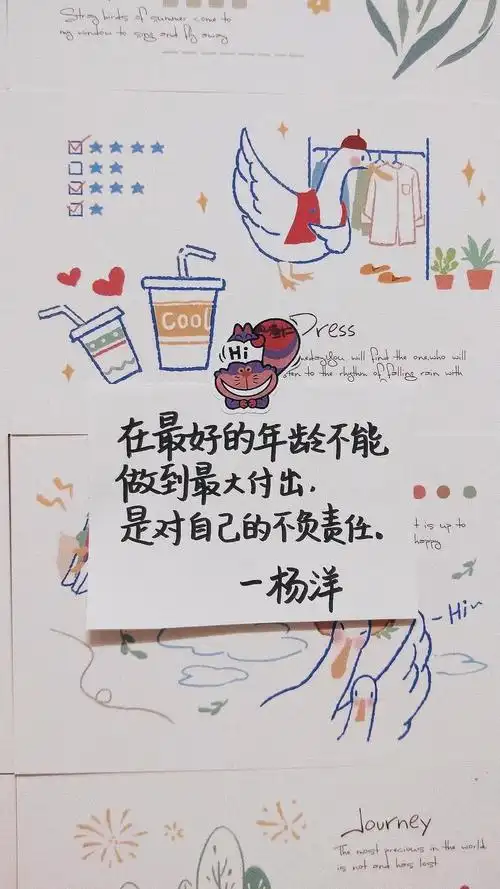 Stray birds of summer come to
my window to sing and fly away
COOL
Hi
Dress
you will find the one, who will
to the rhythm of falling rain with
在最好的年龄不能
做到最大付出.
是对自己的不负责任。
一杨洋
t is up to
happy
Hi~
Journey
The most precious in the world
is not and has lost